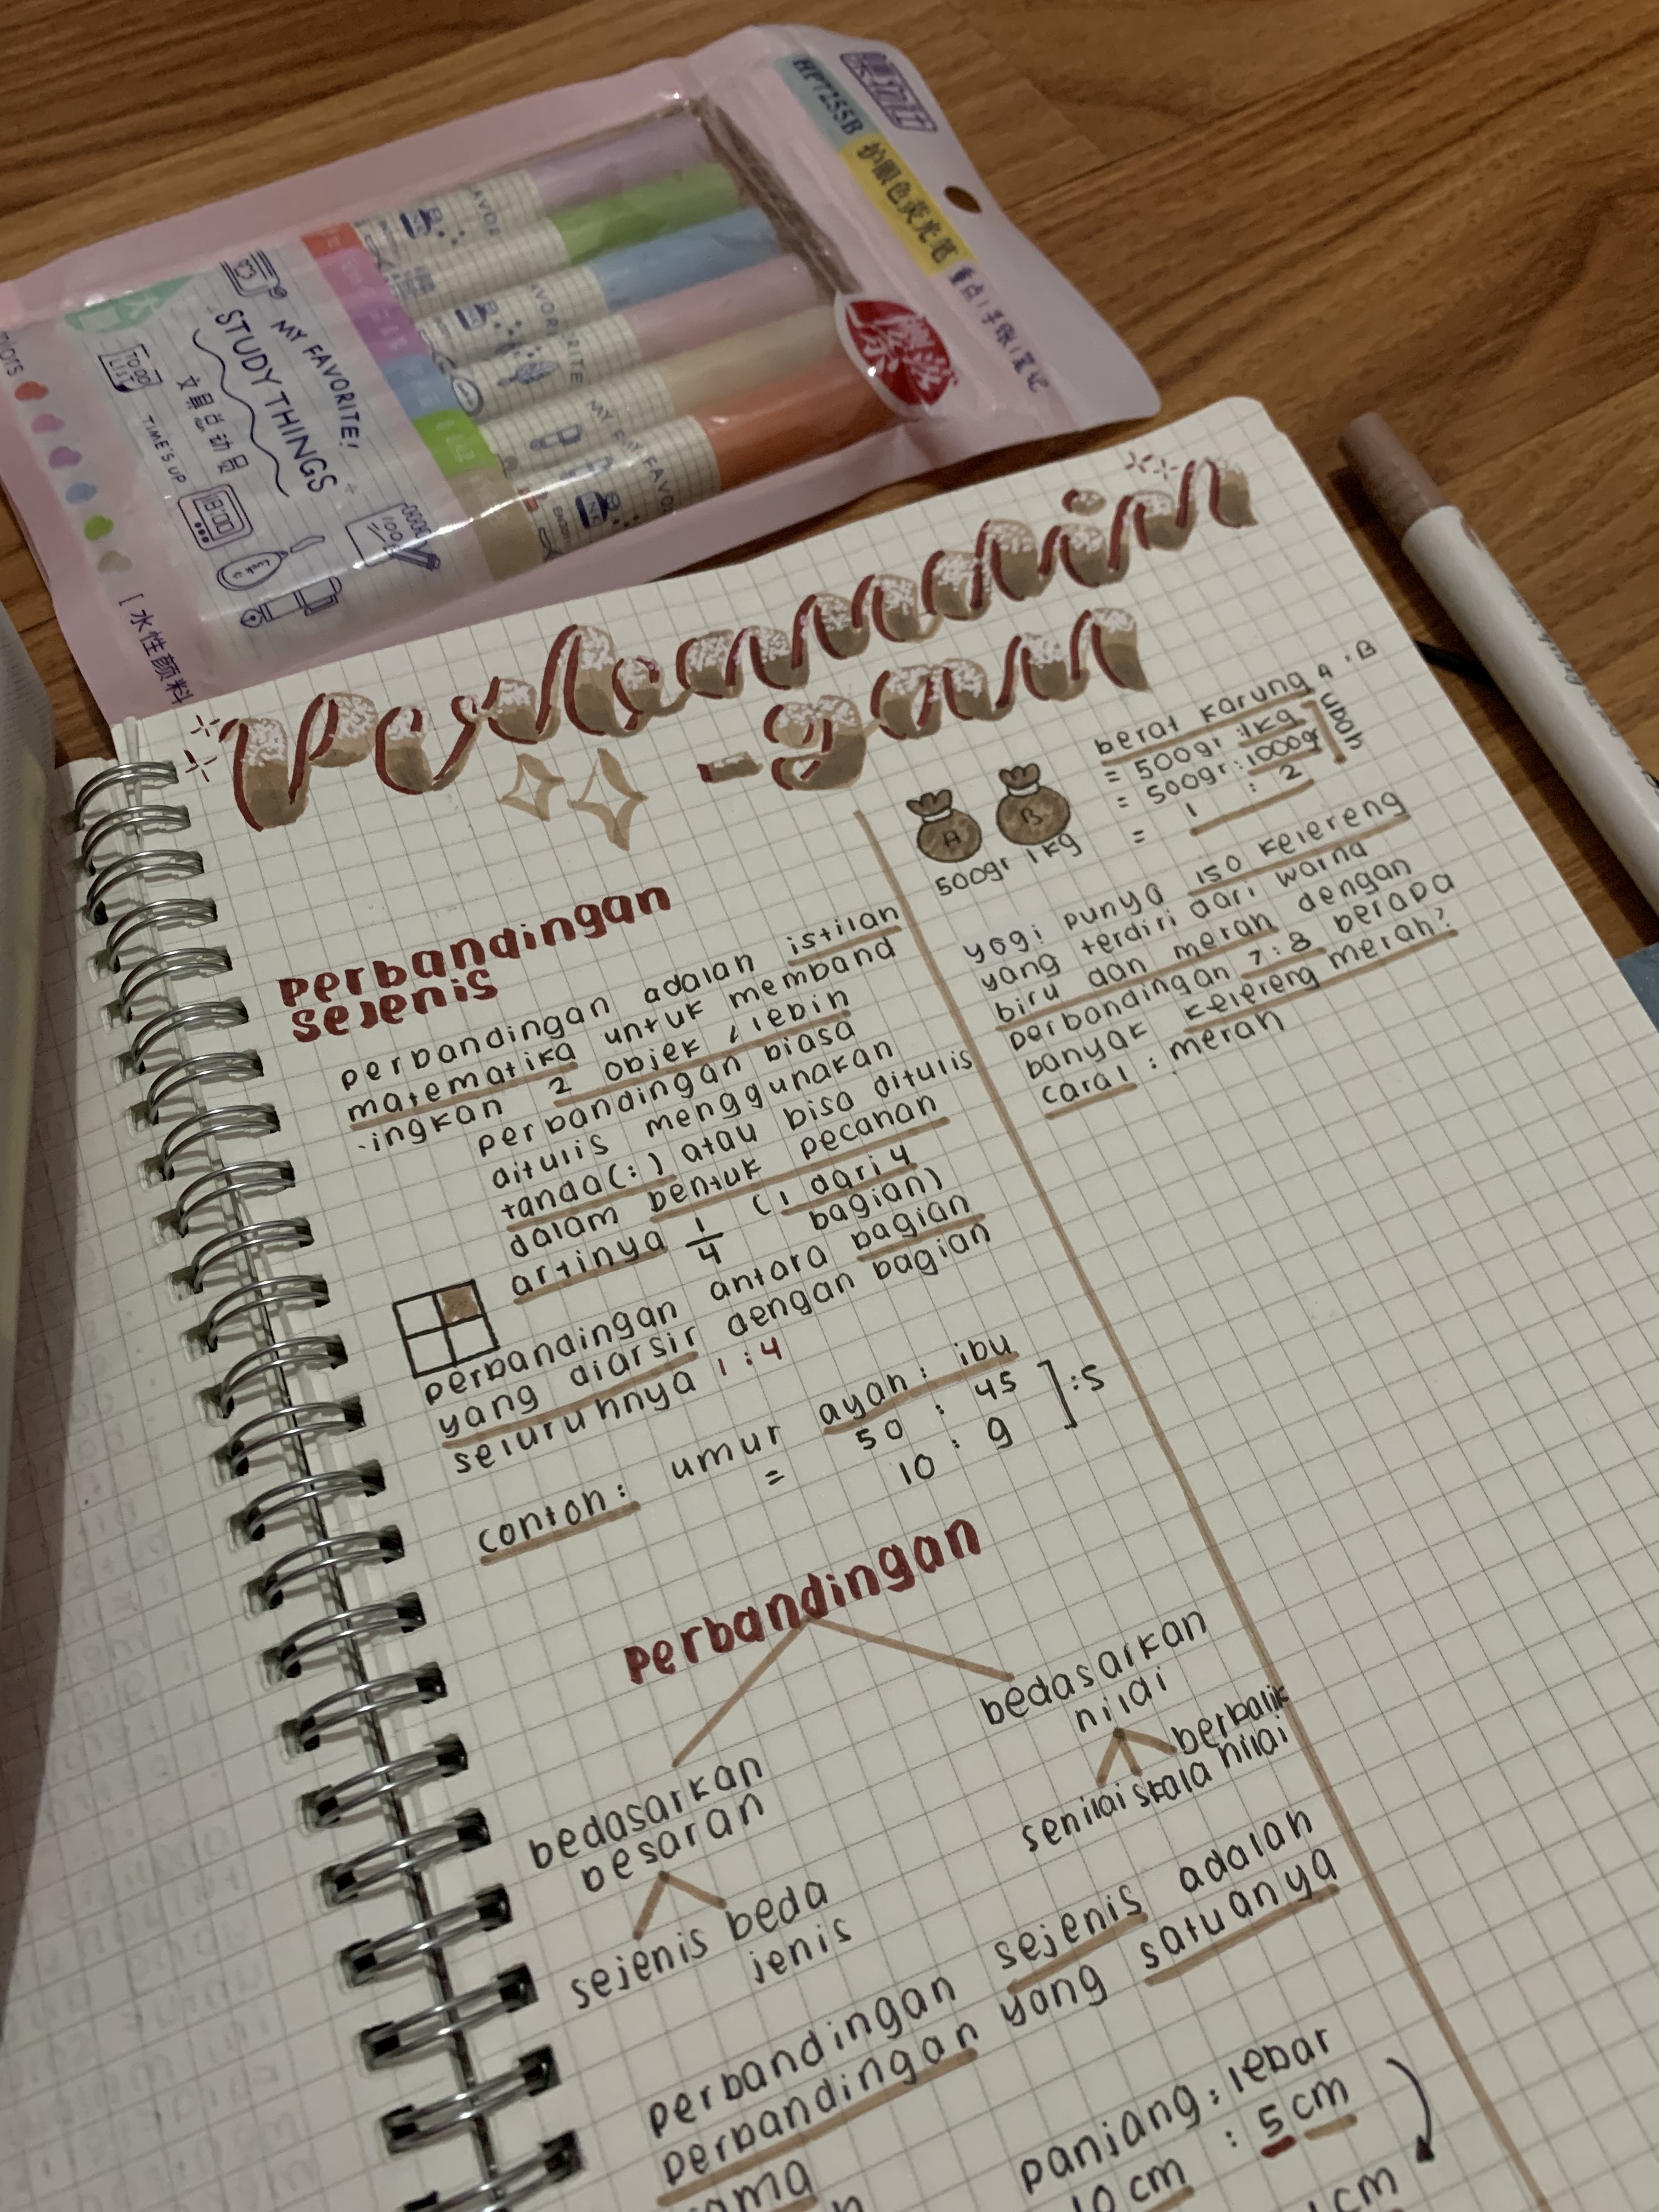 HP7255B
护眼色荧光笔
重点|手账|笔记
MY FAVORITE!
STUDY THINGS
文具总动员
TO DO LIST
TIME'S UP
13:00
100
INK
[水性颜料
Perbandin
-gan
perbandingan
sejenis
perbandingan adalah istilah
matematika untuk memband
-ingkan 2 objek / lebih
perbandingan biasa
ditulis menggunakan
tanda (:) atau bisa ditulis
dalam bentuk pecahan
artinya 1/4 (1 dari 4
bagian)
perbandingan antara bagian
yang diarsir dengan bagian
seluruhnya 1 : 4
contoh: umur ayah : ibu
= 50 : 45
10 : 9 ] :5
perbandingan
bedasarkan
besaran
sejenis
beda
jenis
bedasarkan
nilai
senilai
skala
berbalik
nilai
perbandingan sejenis adalah
perbandingan yang satuanya
panjang : lebar
10 cm : 5 cm
A
B
500gr 1kg
berat karung A : B
= 500gr : 1kg
= 500gr : 1000gr
ubah
= 1 : 2
yogi punya 150 kelereng
yang terdiri dari warna
biru dan merah dengan
perbandingan 7 : 8 berapa
banyak kelereng merah?
cara1 : merah